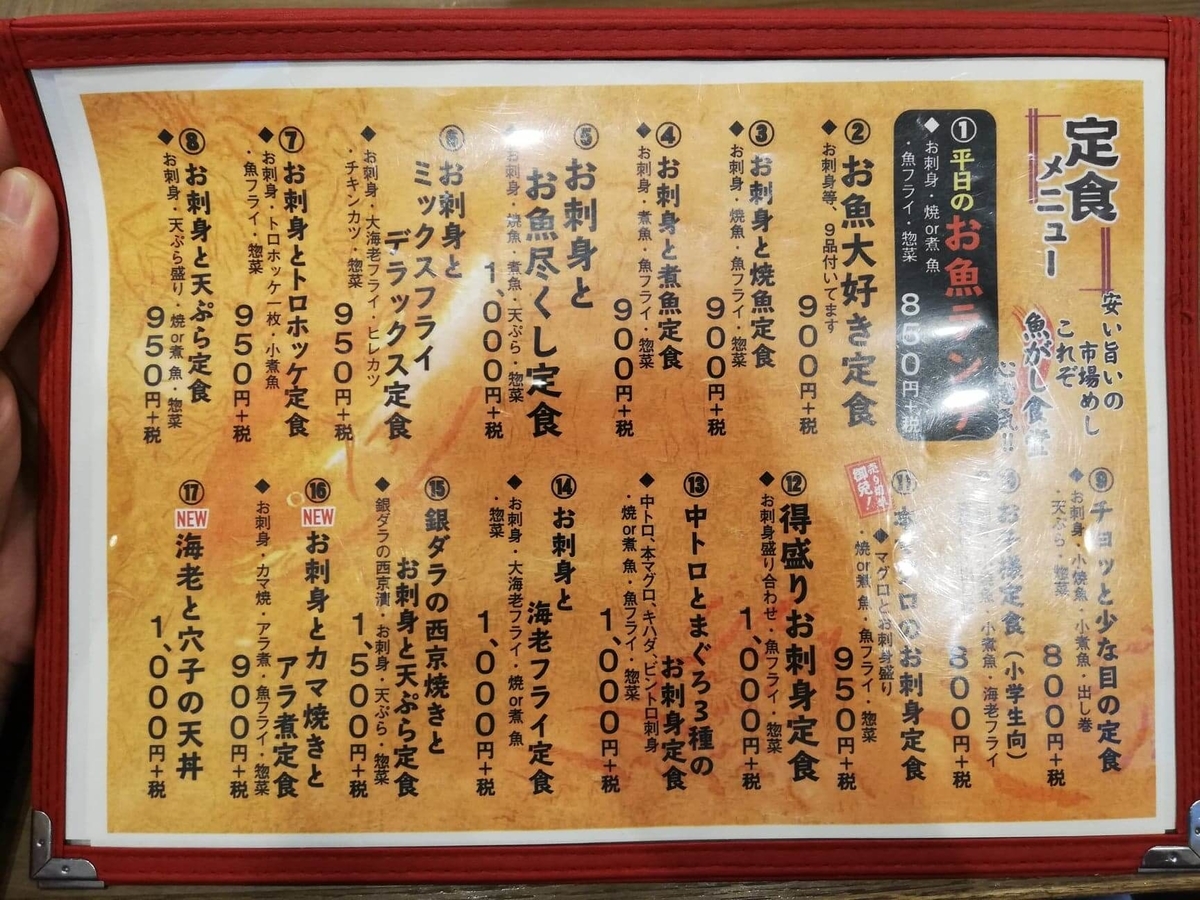 定食
メニュー
安い旨いの
市場めし
これぞ
魚がし食堂
①平日のお魚ランチ
◆お刺身・焼or煮 魚
・魚フライ・惣菜
850円+税
②お魚大好き定食
◆お刺身等、9品付いてます
900円+税
③お刺身と焼魚定食
◆お刺身・焼魚・魚フライ・惣菜
900円+税
④お刺身と煮魚定食
◆お刺身・煮魚・魚フライ・惣菜
900円+税
⑤お刺身と
お魚尽くし定食
◆お刺身・焼魚・煮魚・天ぷら・惣菜
1,000円+税
⑥お刺身と
ミックスフライ
デラックス定食
◆お刺身・大海老フライ・ヒレカツ
・チキンカツ・惣菜
950円+税
⑦お刺身とトロホッケ定食
◆お刺身・トロホッケ一枚・小煮魚
・魚フライ・惣菜
950円+税
⑧お刺身と天ぷら定食
◆お刺身・天ぷら盛り・焼or煮 魚・惣菜
950円+税
⑨チョッと少な目の定食
◆お刺身・小焼魚・小煮魚・出し巻
・天ぷら・惣菜
800円+税
⑩お子様定食(小学生向)
・小煮魚・海老フライ
800円+税
売り切れ
御免!
⑪本マグロのお刺身定食
◆マグロとお刺身盛り
焼or煮 魚・魚フライ・惣菜
950円+税
⑫得盛りお刺身定食
◆お刺身盛り合わせ・魚フライ・惣菜
1,000円+税
⑬中トロとまぐろ3種の
お刺身定食
◆中トロ、本マグロ、キハダ、ビントロ刺身
・焼or煮 魚・魚フライ・惣菜
1,000円+税
⑭お刺身と
海老フライ定食
◆お刺身・大海老フライ・焼or煮 魚
・惣菜
1,000円+税
⑮銀ダラの西京焼きと
お刺身と天ぷら定食
◆銀ダラの西京漬・お刺身・天ぷら・惣菜
1,500円+税
⑯NEW お刺身とカマ焼きと
アラ煮定食
◆お刺身・カマ焼・アラ煮・魚フライ・惣菜
900円+税
⑰NEW 海老と穴子の天丼
1,000円+税